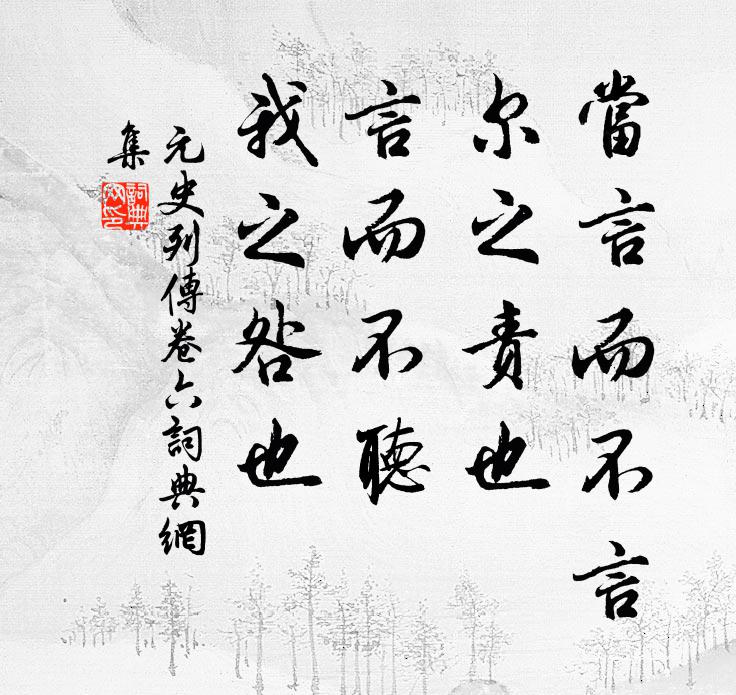 當言而不言
尔之責也
言而不聽
我之咎也
元史列傳卷六詞典網
集
詞典
網印